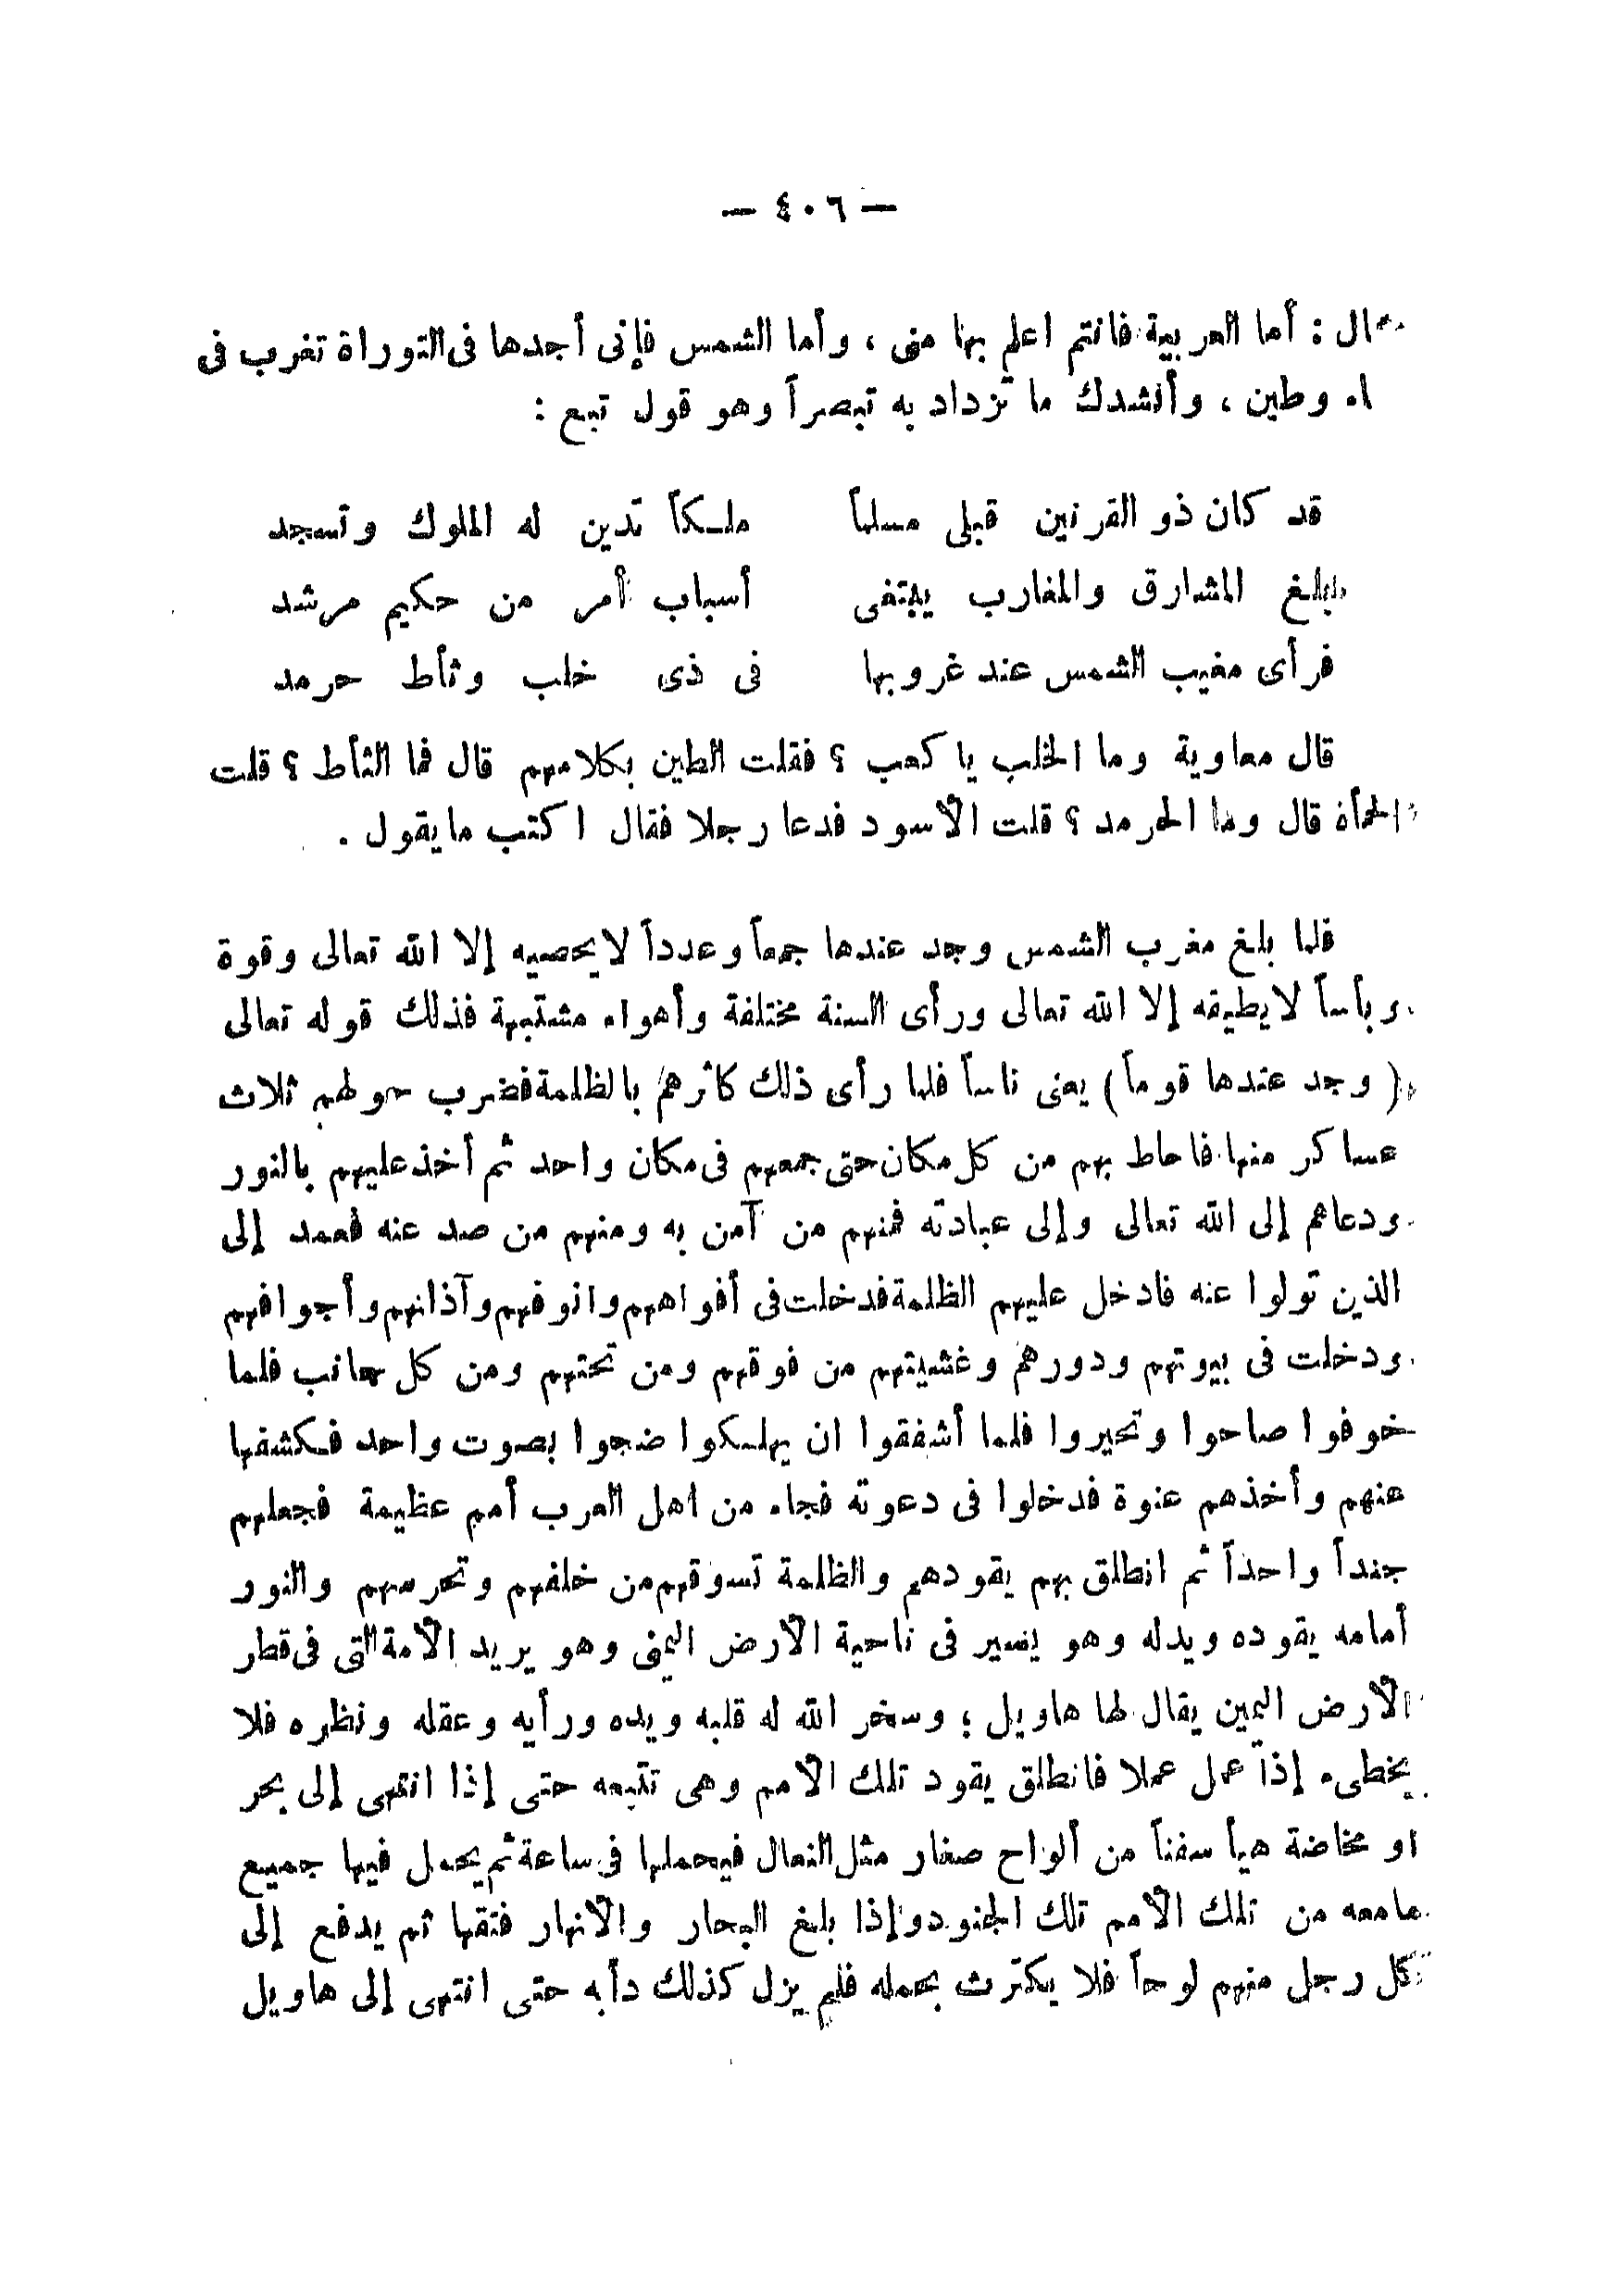 — ٤٠٦ —
ـال : أما العربية فانتم اعلم بها منى ، وأما الشمس فإنى أجدها فى التوراة تغرب فى
ـاء وطين ، وأنشدك ما تزداد به تبصراً وهو قول تبع :
قد كان ذو القرنين قبلى مسلماً ملكاً تدين له الملوك وتسجد
بلغ المشارق والمغارب يبتغى أسباب أمر من حكيم مرشد
فرأى مغيب الشمس عند غروبها فى ذى خلب وثأط حرمد
قال معاوية وما الخلب يا كعب ؟ فقلت الطين بكلامهم قال فما الثأط ؟ قلت
الحمأة قال وما الحرمد ؟ قلت الأسود فدعا رجلا فقال اكتب ما يقول .
فلما بلغ مغرب الشمس وجد عندها جمعاً وعدداً لا يحصيه إلا الله تعالى وقوة
وبأساً لا يطيقه إلا الله تعالى ورأى السنة مختلفة وأهواء مشتبهة فذلك قوله تعالى
( وجد عندها قوماً ) يعنى ناساً فلما رأى ذلك كاثرهم بالظلمة فضرب حولهم ثلاث
عساكر منها فاحاط بهم من كل مكان حتى جمعهم فى مكان واحد ثم أخذ عليهم بالنور
ودعاهم إلى الله تعالى وإلى عبادته فمنهم من آمن به ومنهم من صد عنه فعمد إلى
الذين تولوا عنه فادخل عليهم الظلمة فدخلت فى أفواههم وانوفهم وآذانهم وأجوافهم
ودخلت فى بيوتهم ودورهم وغشيتهم من فوقهم ومن تحتهم ومن كل جانب فلما
خوفوا صاحوا وتحيروا فلما أشفقوا ان يهلكوا ضجوا بصوت واحد فكشفها
عنهم وأخذهم عنوة فدخلوا فى دعوته فجاء من اهل العرب أمم عظيمة فجعلهم
جنداً واحداً ثم انطلق بهم يقودهم والظلمة تسوقهم من خلفهم وتحرسهم والنور
أمامه يقوده ويدله وهو يسير فى ناحية الأرض اليمنى وهو يريد الأمة التى فى قطر
الأرض اليمين يقال لها هاويل ؛ وسخر الله له قلبه ويده ورأيه وعقله ونظره فلا
يخطىء إذا عمل عملا فانطلق يقود تلك الأمم وهى تتبعه حتى إذا انتهى إلى بحر
او مخاضة هيأ سفناً من ألواح صغار مثل النعال فيحملها فى ساعة ثم يحمل فيها جميع
مامعه من تلك الأمم تلك الجنود وإذا بلغ البحار والأنهار فتقها ثم يدفع إلى
كل رجل منهم لوحاً فلا يكترث بحمله فلم يزل كذلك دأبه حتى انتهى إلى هاويل